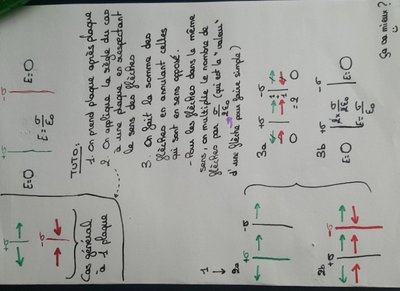 +σ
-σ
Cas général
à 1 plaque
+σ
-σ
E=0
E=σ/ε₀
E=0
TUTO:
1. On prend plaque après plaque
2. On applique la règle du cas
à une plaque en respectant
le sens des flèches
3. On fait la somme des
flèches en annulant celles
qui sont en sens opposé.
- Pour les flèches dans le même
sens, on multiplie le nombre de
flèches par σ/2ε₀ (qui est la "valeur"
d'une flèche pour faire simple)
1
2a
+σ
-σ
2b
+σ
-σ
3a
+σ
-σ
0
=2
0
3b
+σ
-σ
E=0
2×σ/2ε₀
E=σ/ε₀
E=0
ça va mieux?